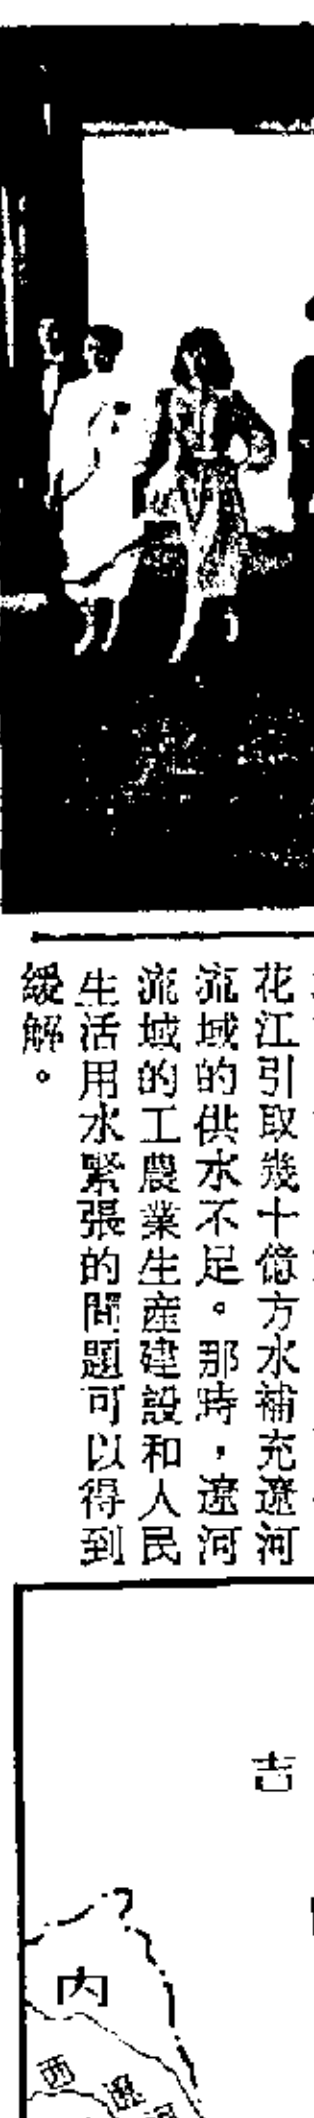 花江引取幾十億方水補充遼河
流域的供水不足。那時，遼河
流域的工農業生產建設和人民
生活用水緊張的問題可以得到
緩解。
吉
內
西遼河